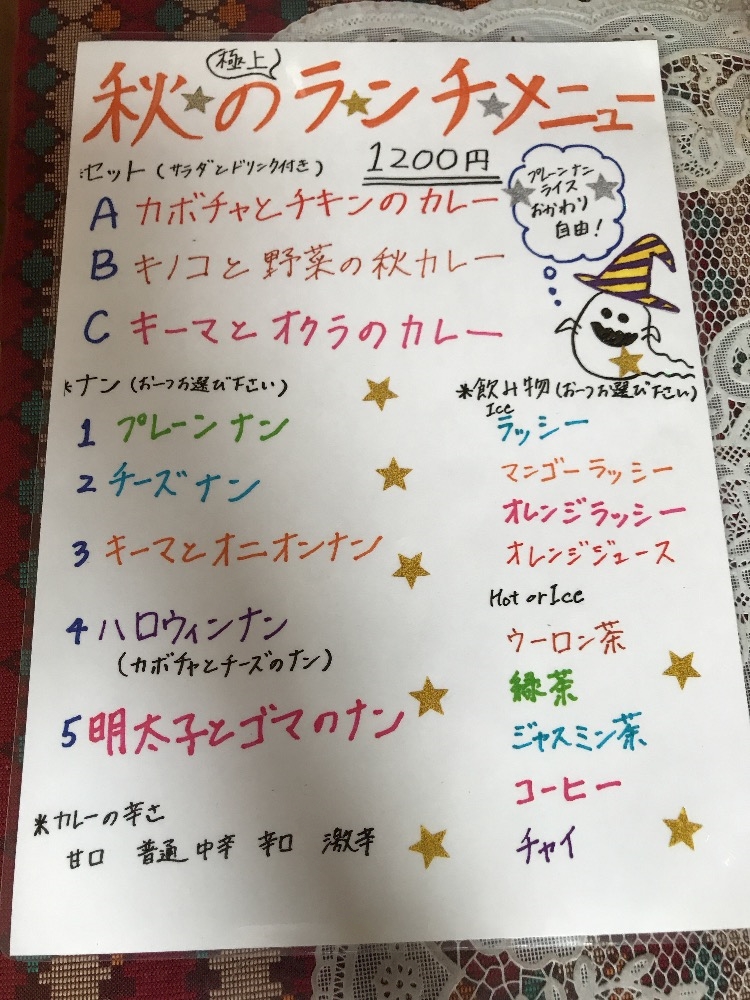 極上
秋のランチメニュー
セット(サラダとドリンク付き)
1200円
プレーンナン
ライス
おかわり
自由!
A カボチャとチキンのカレー
B キノコと野菜の秋カレー
C キーマとオクラのカレー
*ナン(お一つお選び下さい)
1 プレーンナン
2 チーズナン
3 キーマとオニオンナン
4 ハロウィンナン
(カボチャとチーズのナン)
5 明太子とゴマのナン
※飲み物(お一つお選び下さい)
Ice
ラッシー
マンゴーラッシー
オレンジラッシー
オレンジジュース
Hot or Ice
ウーロン茶
緑茶
ジャスミン茶
コーヒー
チャイ
※カレーの辛さ
甘口 普通 中辛 辛口 激辛